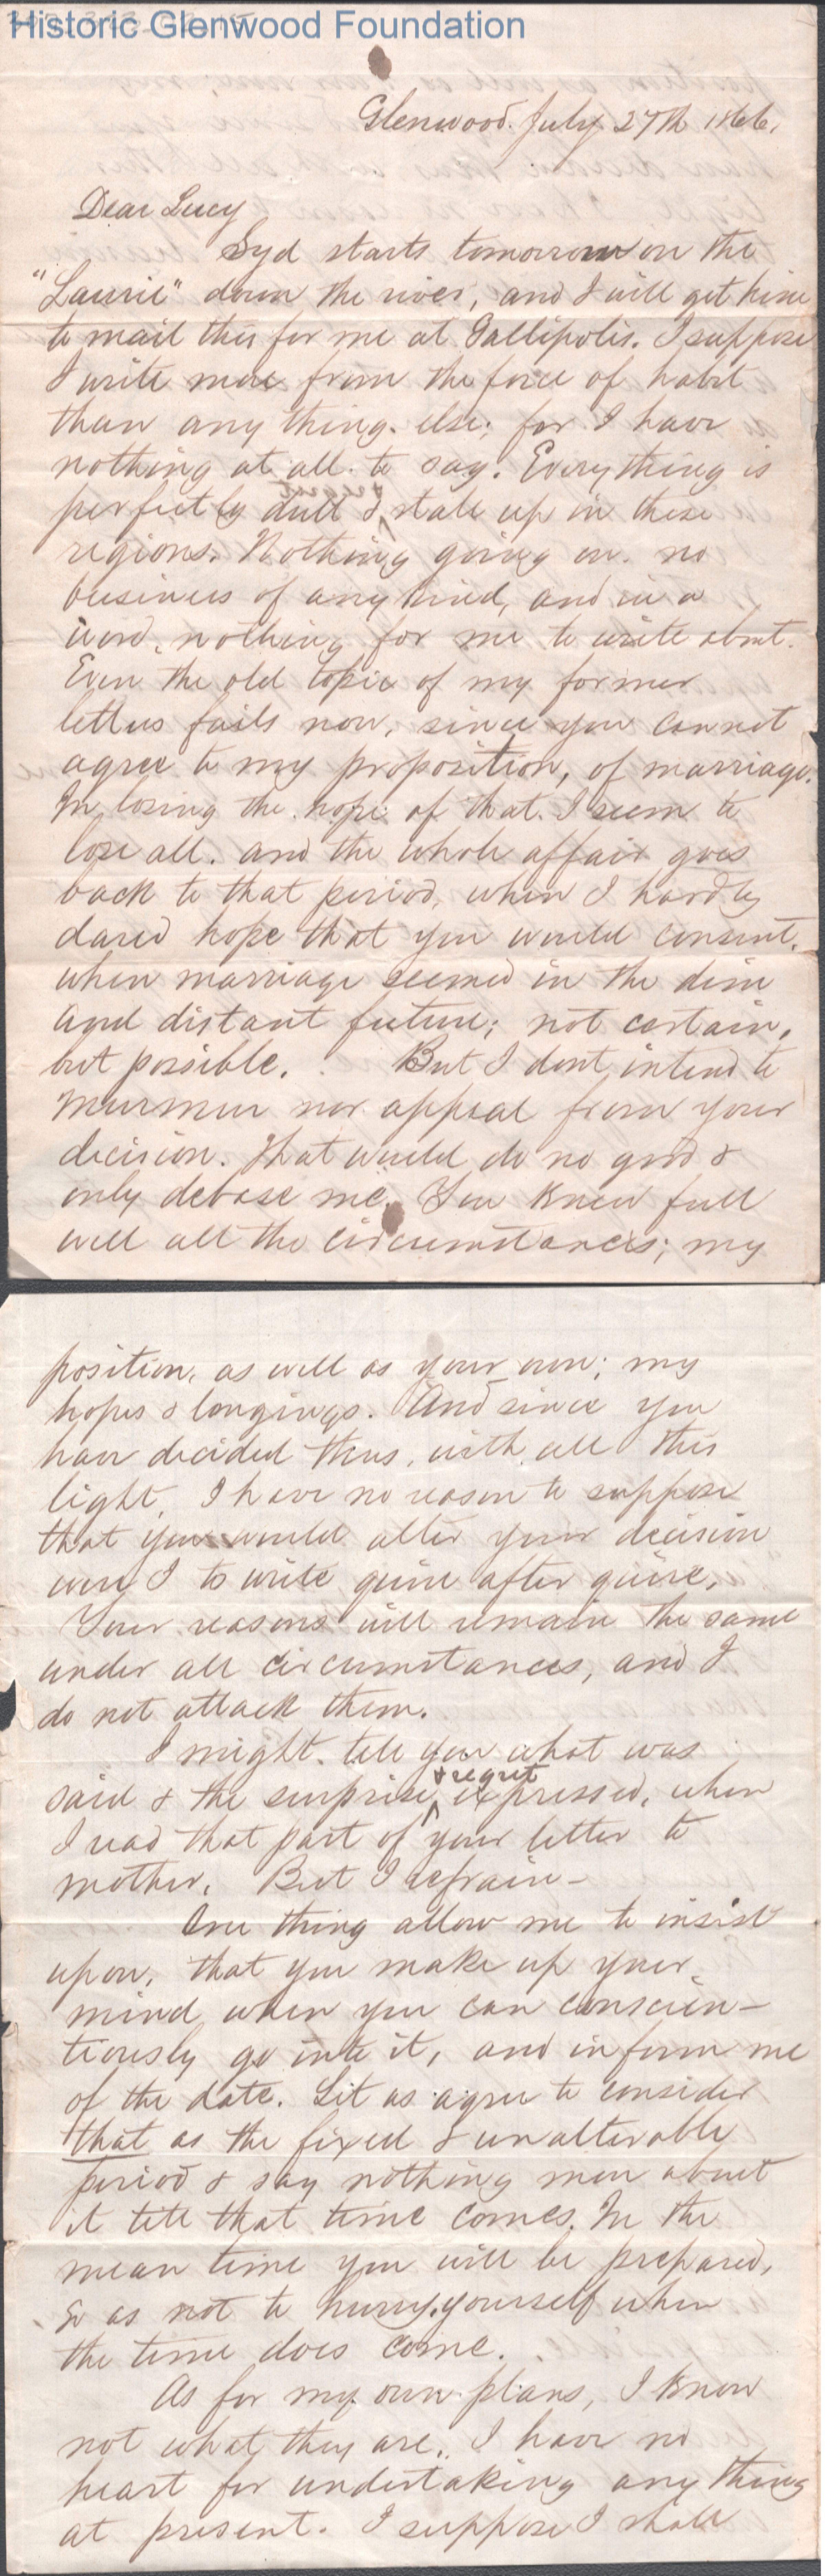 Historic Glenwood Foundation
Glenwood. July 27th 1866.
Dear Lucy
Syd starts tomorrow on the
"Laurie" down the river, and I will get him
to mail this for me at Gallipolis. I suppose
I write more from the force of habit
than any thing. else; for I have
nothing at all to say. Everything is
perfectly dull & stale up in these
regions. Nothing going on. no
business of any kind, and in a
word, nothing for me to write about.
Even the old topic of my former
letters fails now, since you cannot
agree to my proposition, of marriage.
In losing the hope of that. I seem to
lose all. and the whole affair goes
back to that period, when I hardly
dared hope that you would consent.
when marriage seemed in the dim
and distant future; not certain,
but possible. But I dont intend to
murmur nor appeal from your
decision. That would do no good &
only debase me. You knew full
well all the circumstances; my
position, as well as your own; my
hopes & longings. And since you
have decided thus, with all this
light, I have no reason to suppose
that you would alter your decision
were I to write quire after quire.
Your reasons will remain the same
under all circumstances, and I
do not attack them.
I might. tell you what was
said & the surprise & regret expressed, when
I read that part of your letter to
mother. But I refrain -
One thing allow me to insist
upon, that you make up your
mind when you can conscien-
tiously go into it, and inform me
of the date. Let us agree to consider
that as the fixed & unalterable
period & say nothing more about
it till that time comes. In the
mean time you will be prepared,
so as not to hurry yourself when
the time does come.
As for my own plans, I know
not what they are. I have no
heart for undertaking any thing
at present. I suppose I shall